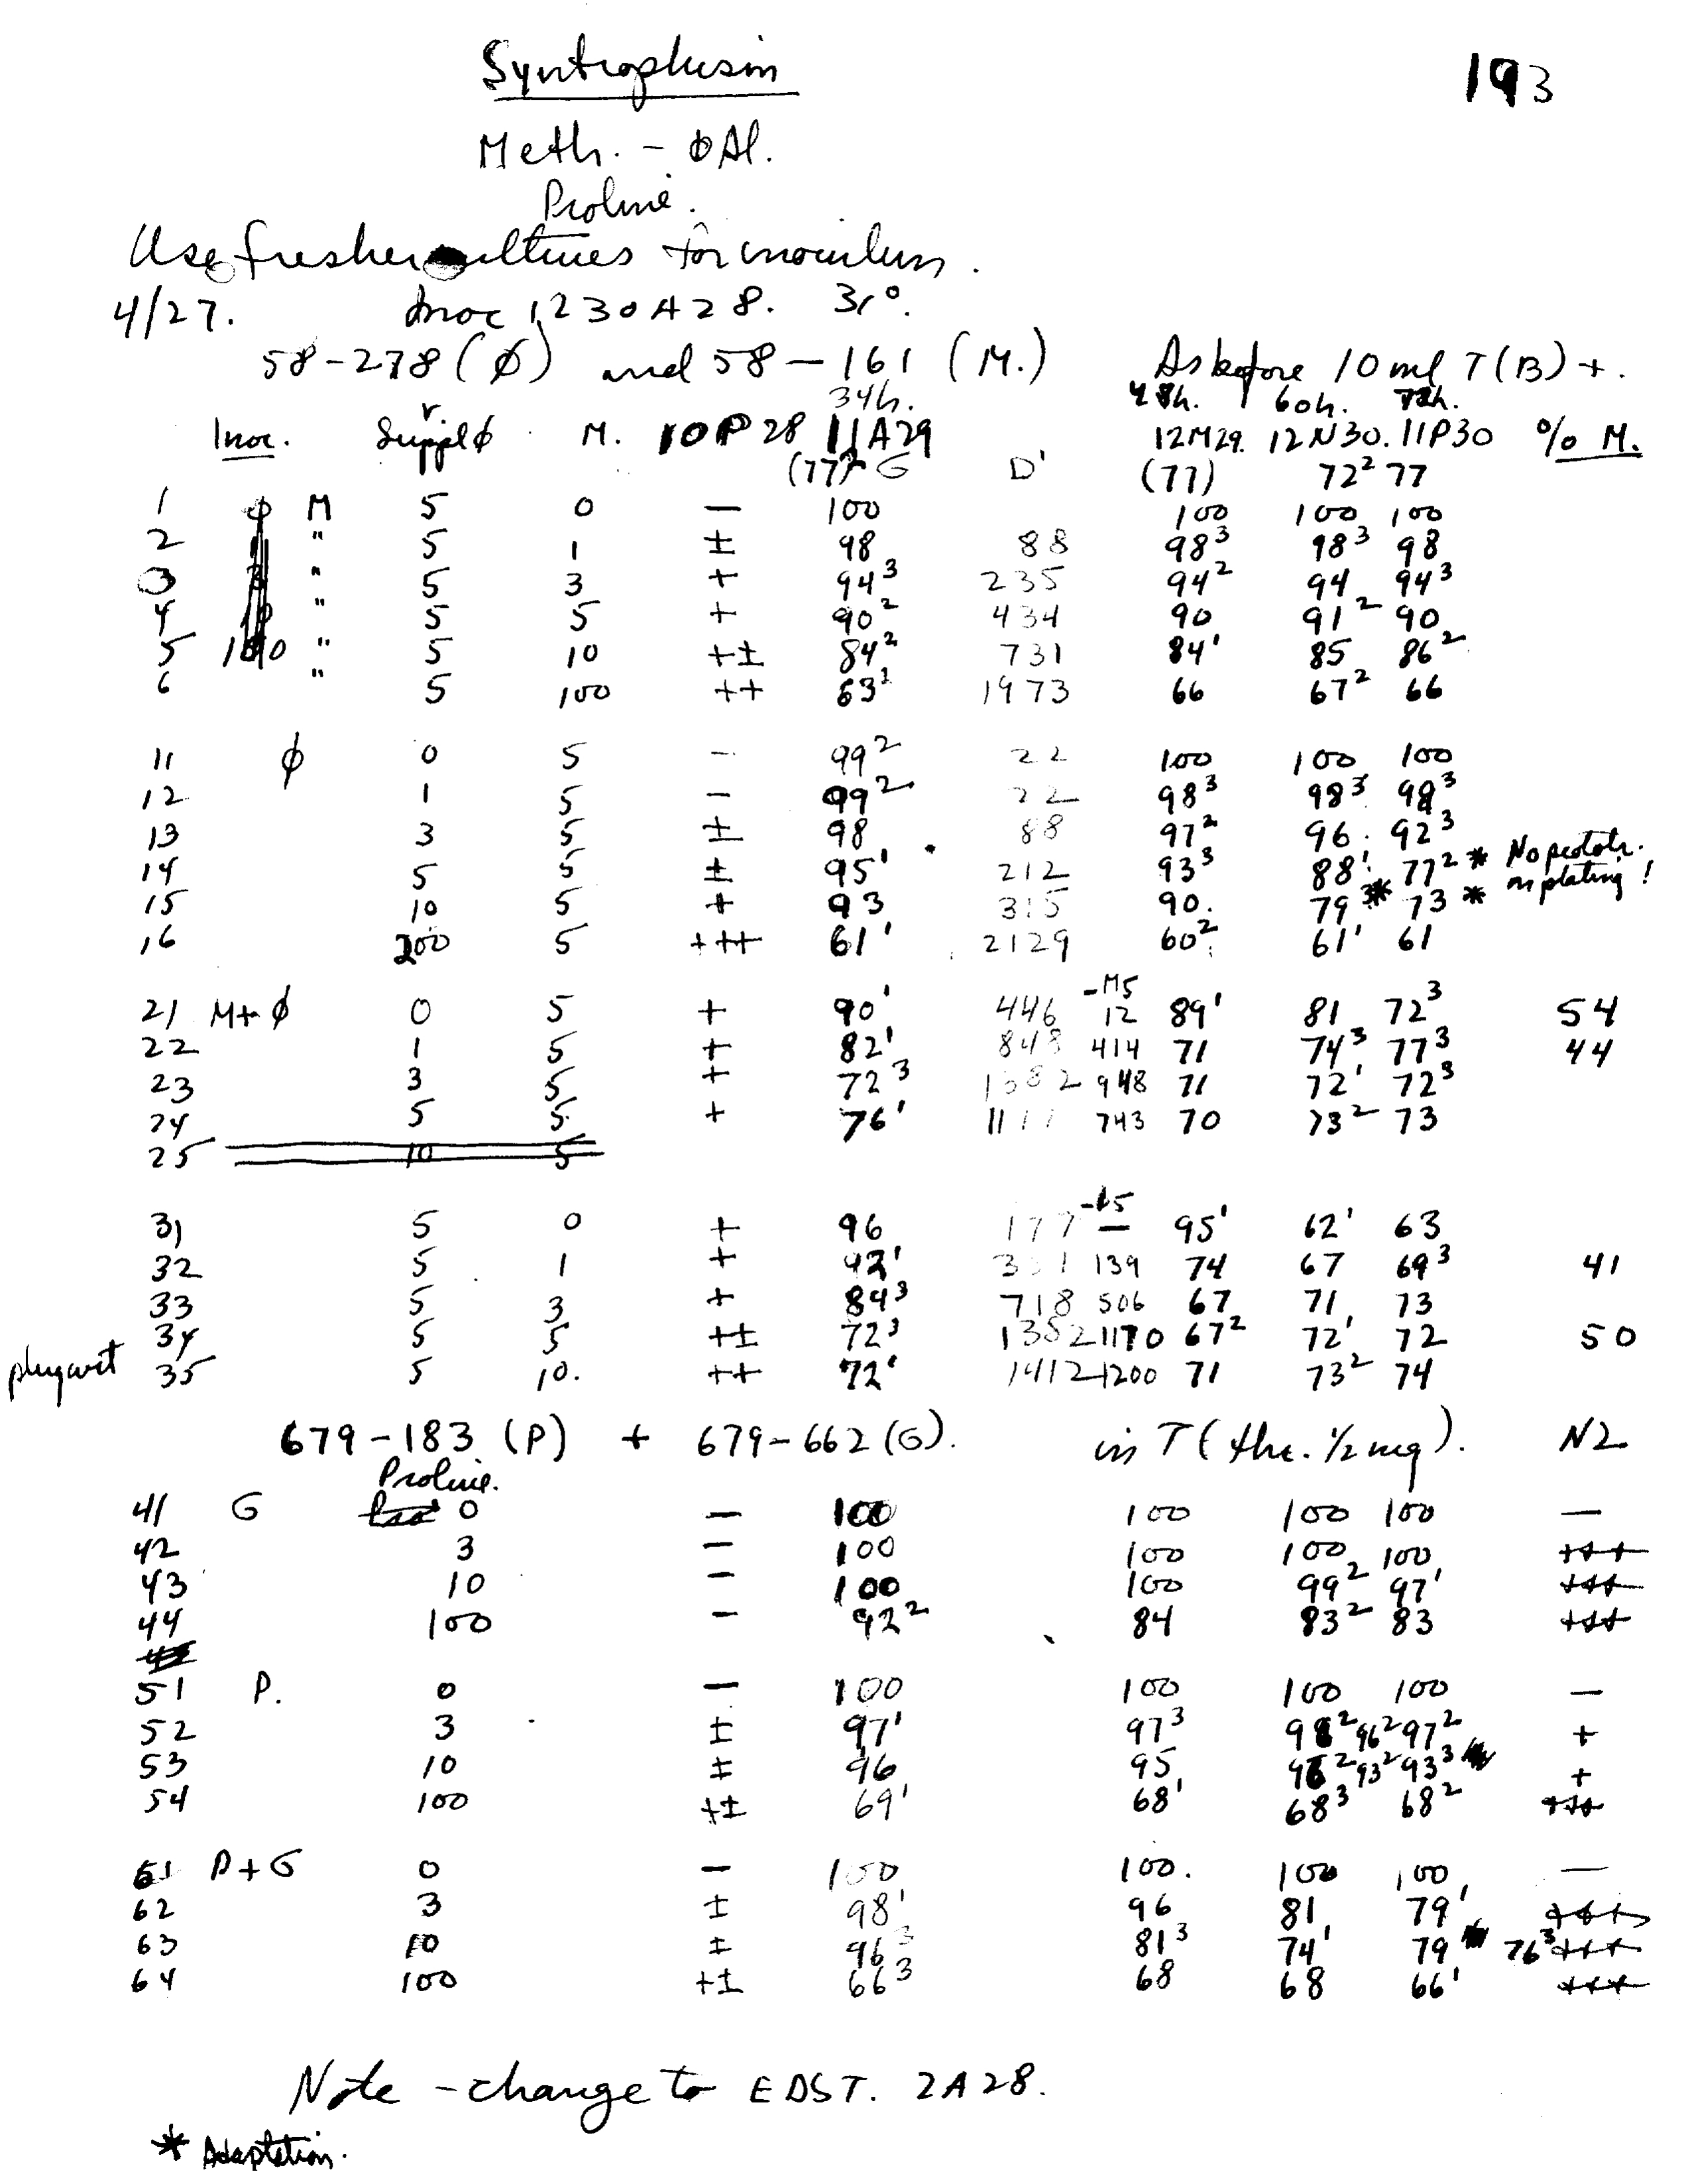 Syntrophism
193
Meth. - φAl.
Proline.
Use fresher cultures for inoculum.
4/27. Inoc 1230A28. 31°.
58-278 (φ) and 58-161 (M.) As before 10 ml T(B) +.
34h. 48h. 60h. 72h.
Inoc. Suppl φ M. 10P28 11A29 12M29. 12N30. 11P30 % M.
(77)² G D' (77) 72² 77
1 M 5 0 — 100 100 100 100
2 " 5 1 ± 98 88 98³ 98³ 98
3 " 5 3 + 94³ 235 94² 94 94³
4 " 5 5 + 90² 434 90 91² 90
5 " 5 10 +± 84² 731 84' 85 86²
6 " 5 100 ++ 63² 1973 66 67² 66
11 φ 0 5 - 99² 22 100 100 100
12 1 5 - 99² 22 98³ 98³ 98³
13 3 5 ± 98 88 97² 96. 92³
14 5 5 ± 95' 212 93³ 88' 77² * No prototr.
15 10 5 + 93 315 90. 79³* 73 * on plating!
16 200 5 +++ 61' 2129 60² 61' 61
-M5
21 M+φ 0 5 + 90' 446 12 89' 81 72³ 54
22 1 5 + 82' 848 414 71 74³ 77³ 44
23 3 5 + 72³ 1382 948 71 72' 72³
24 5 5 + 76' 1177 743 70 73² 73
25 10 5
-φ5
31 5 0 + 96 177 — 95' 62' 63
32 5 1 + 92' 351 139 74 67 69³ 41
33 5 3 + 84³ 718 506 67 71 73
34 5 5 +± 72³ 1352 1170 67² 72' 72 50
plug wet 35 5 10. ++ 72' 1412 1200 71 73² 74
679-183 (P) + 679-662 (G). in T (thr. 1/2 mg). N2
Proline.
41 G 0 — 100 100 100 100 —
42 3 — 100 100 100 100 +++
43 10 - 100 100 99² 97' +++
44 100 - 92² 84 83² 83 +++
51 P. 0 — 100 100 100 100 —
52 3 ± 97' 97³ 98² 96² 97² +
53 10 ± 96 95 96² 93² 93³ +
54 100 +± 69' 68' 68³ 68² +++
61 P+G 0 — 100 100. 100 100 —
62 3 ± 98' 96 81 79' +++
63 10 ± 96³ 81³ 74' 79 76³ +++
64 100 +± 66³ 68 68 66' +++
Note - change to EDST. 2A28.
* Adaptation.